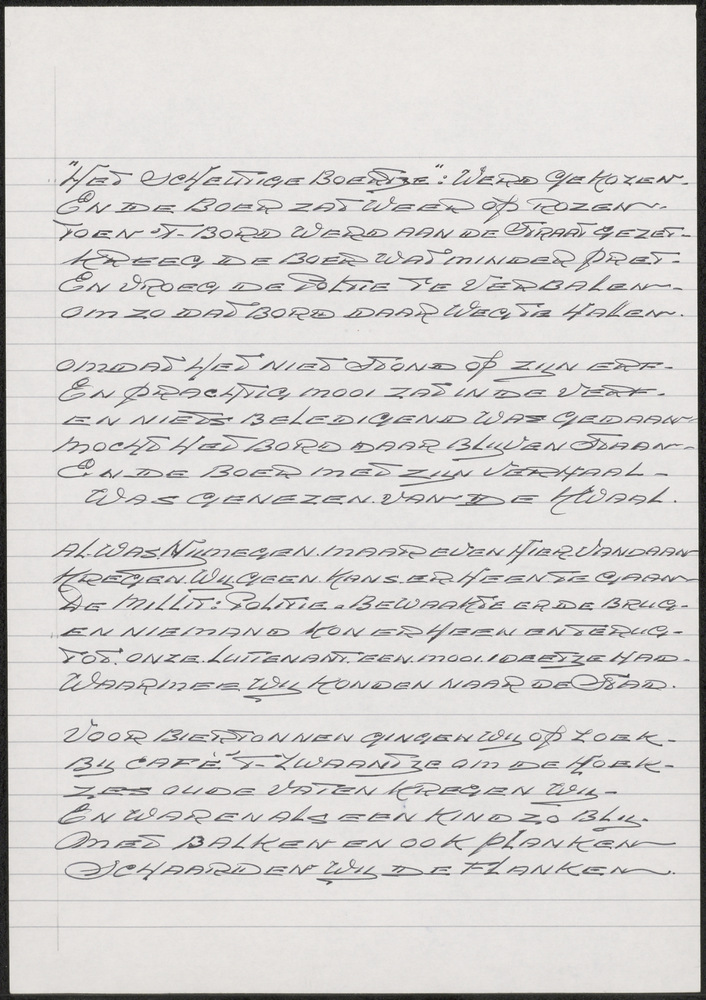 "Het Scheutige Boertje": Werd Gekozen.
En de Boer zat weer op rozen.
Toen 't-Bord werd aan de Straat gezet-
Kreeg de Boer wat minder pret.
En vroeg de Politie te verbalen-
Om zo dat bord daar weg te halen.
Omdat het niet stond op zijn erf-
En prachtig mooi zat in de verf.
En niets beledigend was gedaan-
Mocht het bord daar blijven staan-
En de Boer met zijn verhaal-
Was genezen van de kwaal.
Al. was Nijmegen. maar even hier vandaan
Kregen. Wij geen. kans. er heen te gaan
De Millit: Politie. Bewaakte er de brug-
En niemand kon er heen en terug-
Tot. onze. Luitenant. een. mooi ideetje had-
Waarmee wij konden naar de Stad.
Voor biertonnen gingen wij op zoek-
Bij café 't-Zwaantje om de hoek-
Zes oude vaten kregen wij-
En waren als een kind zo blij.
Met balken en ook planken
Schaarden wij de flanken.